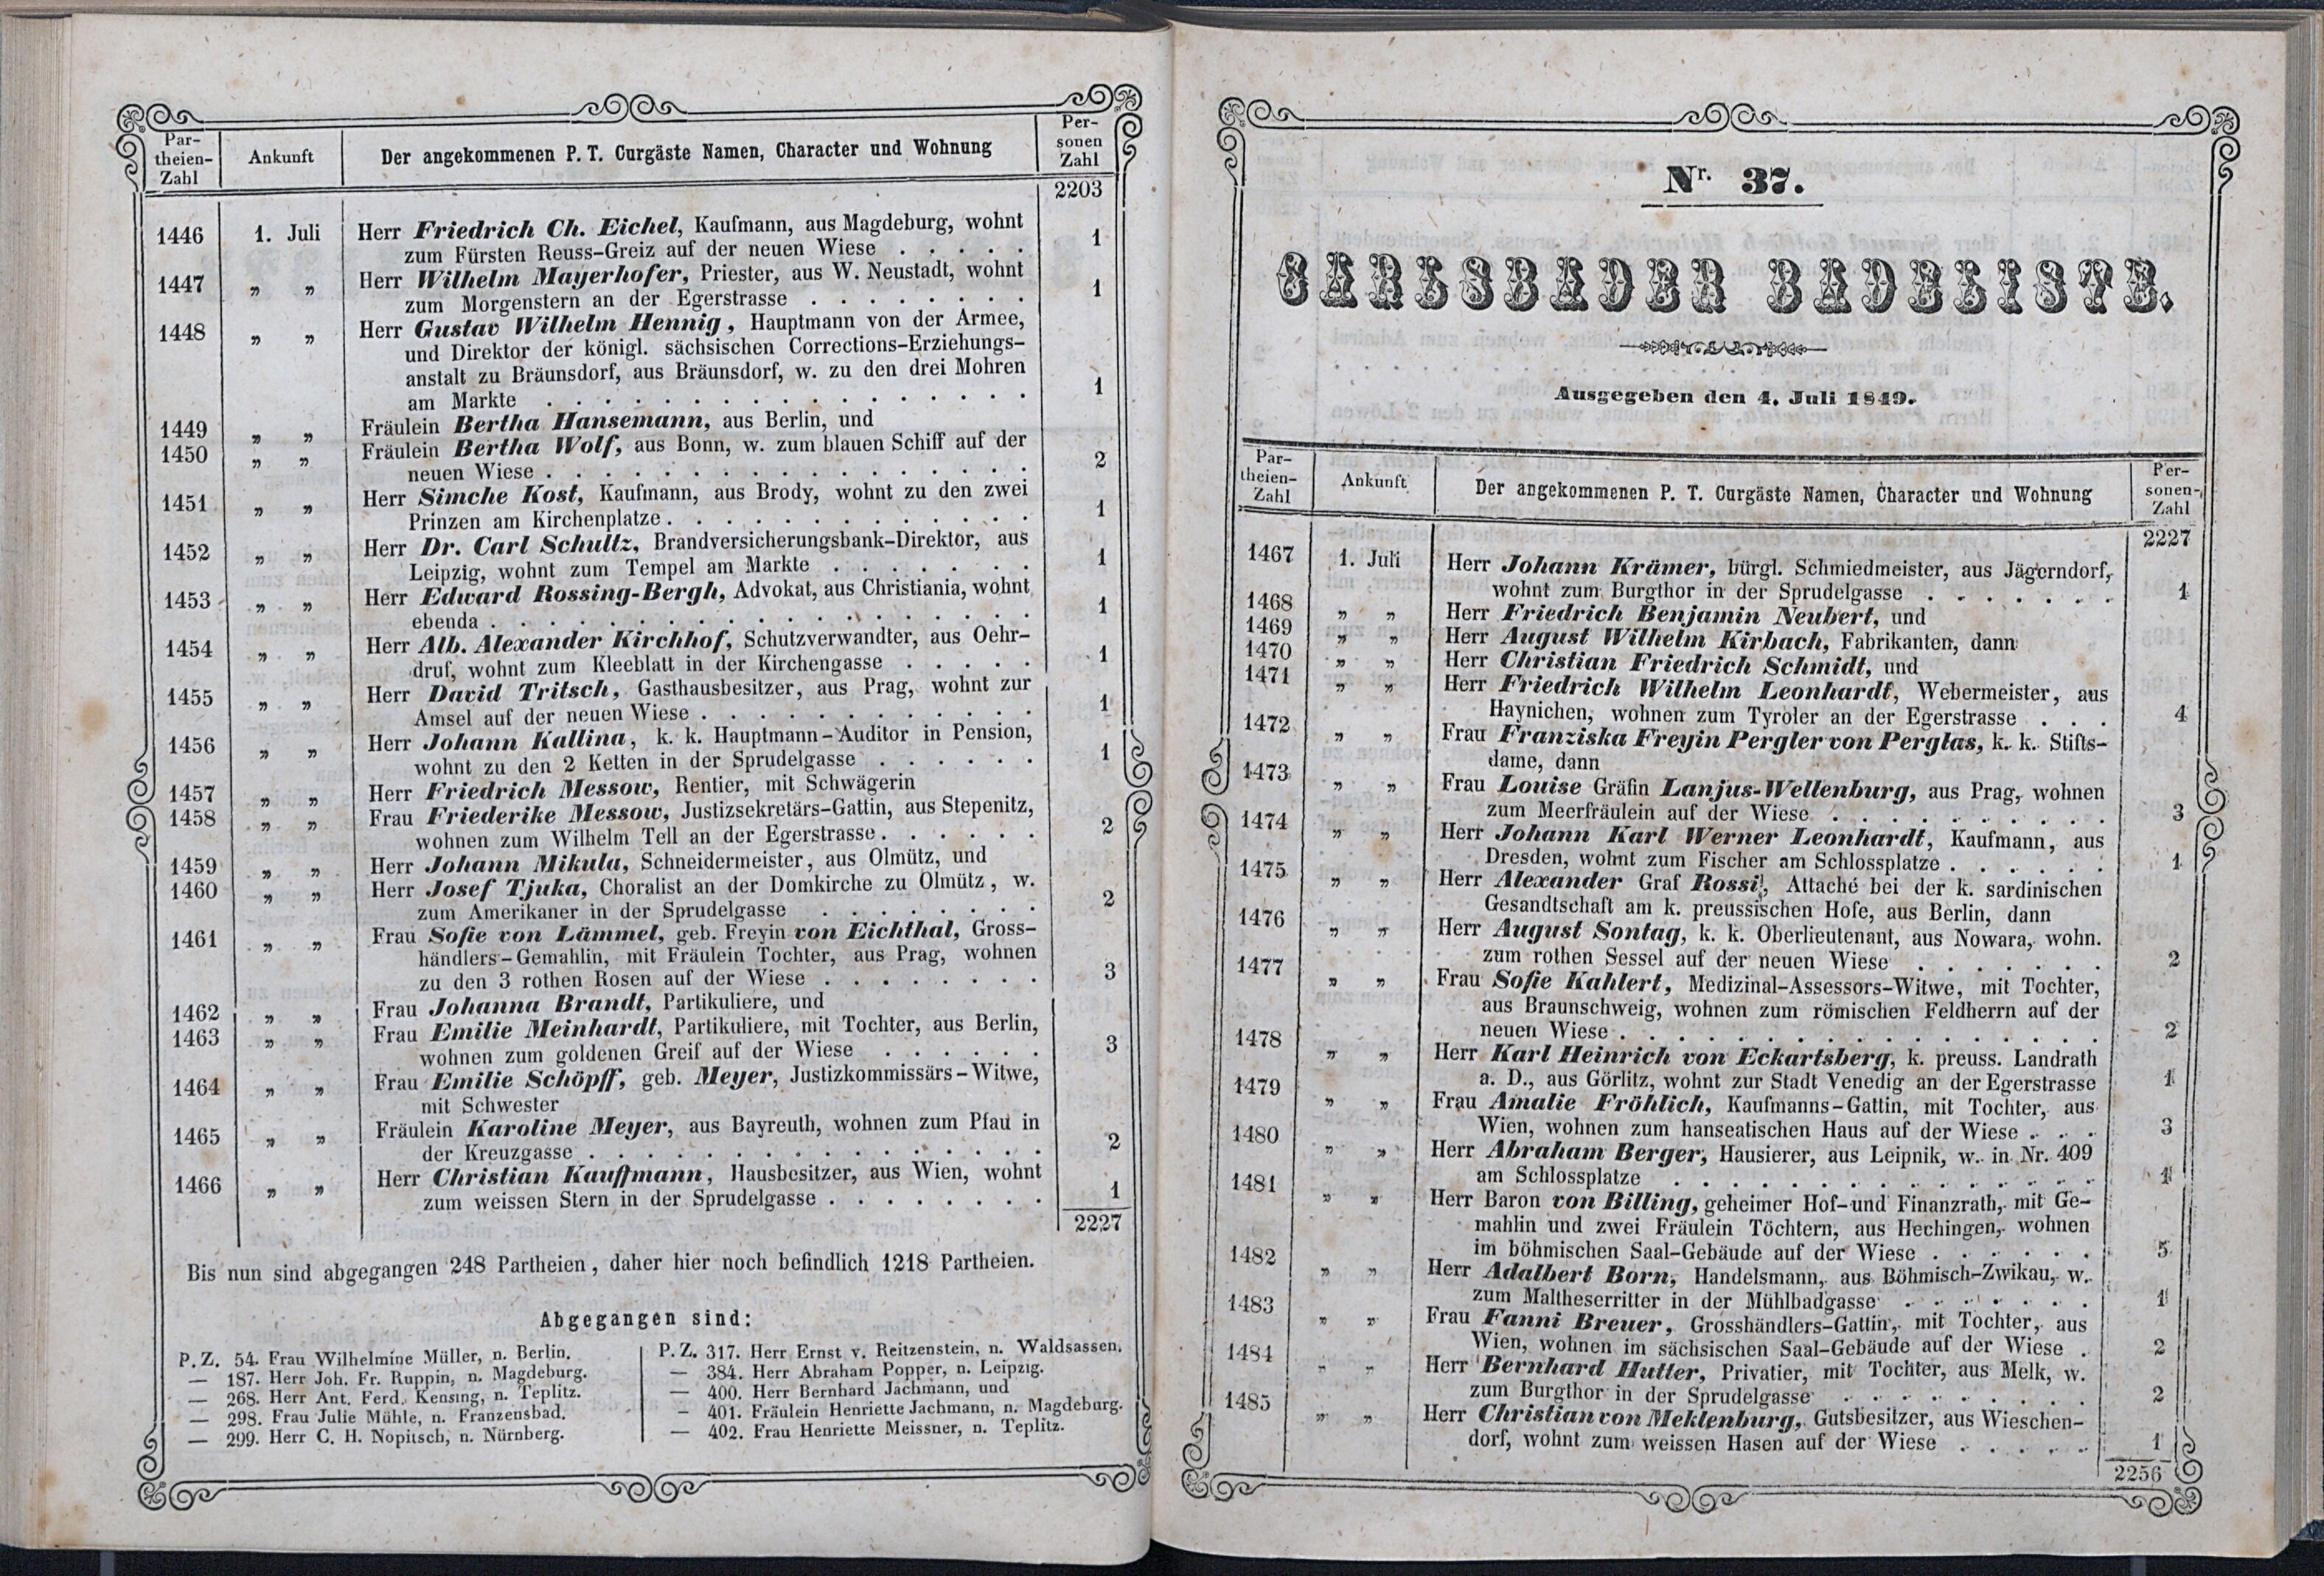 Par-
theien-
Zahl
Ankunft
Der angekommenen P. T. Curgäste Namen, Character und Wohnung
Per-
sonen
Zahl
2203
1446 1. Juli Herr Friedrich Ch. Eichel, Kaufmann, aus Magdeburg, wohnt
zum Fürsten Reuss-Greiz auf der neuen Wiese . . . . . 1
1447 „ „ Herr Wilhelm Mayerhofer, Priester, aus W. Neustadt, wohnt
zum Morgenstern an der Egerstrasse . . . . . . . . 1
1448 „ „ Herr Gustav Wilhelm Hennig, Hauptmann von der Armee,
und Direktor der königl. sächsischen Corrections-Erziehungs-
anstalt zu Bräunsdorf, aus Bräunsdorf, w. zu den drei Mohren
am Markte . . . . . . . . . . . . . . . . . 1
1449 „ „ Fräulein Bertha Hansemann, aus Berlin, und
1450 „ „ Fräulein Bertha Wolf, aus Bonn, w. zum blauen Schiff auf der
neuen Wiese . . . . . . . . . . . . . . . . . 2
1451 „ „ Herr Simche Kost, Kaufmann, aus Brody, wohnt zu den zwei
Prinzen am Kirchenplatze . . . . . . . . . . . . . 1
1452 „ „ Herr Dr. Carl Schultz, Brandversicherungsbank-Direktor, aus
Leipzig, wohnt zum Tempel am Markte . . . . . . . 1
1453 „ „ Herr Edward Rossing-Bergh, Advokat, aus Christiania, wohnt
ebenda . . . . . . . . . . . . . . . . . . . 1
1454 „ „ Herr Alb. Alexander Kirchhof, Schutzverwandter, aus Oehr-
druf, wohnt zum Kleeblatt in der Kirchengasse . . . . . 1
1455 „ „ Herr David Tritsch, Gasthausbesitzer, aus Prag, wohnt zur
Amsel auf der neuen Wiese . . . . . . . . . . . . 1
1456 „ „ Herr Johann Kallina, k. k. Hauptmann-Auditor in Pension,
wohnt zu den 2 Ketten in der Sprudelgasse . . . . . . 1
1457 „ „ Herr Friedrich Messow, Rentier, mit Schwägerin
1458 „ „ Frau Friederike Messow, Justizsekretärs-Gattin, aus Stepenitz,
wohnen zum Wilhelm Tell an der Egerstrasse . . . . . . 2
1459 „ „ Herr Johann Mikula, Schneidermeister, aus Olmütz, und
1460 „ „ Herr Josef Tjuka, Choralist an der Domkirche zu Olmütz, w.
zum Amerikaner in der Sprudelgasse . . . . . . . . 2
1461 „ „ Frau Sofie von Lämmel, geb. Freyin von Eichthal, Gross-
händlers-Gemahlin, mit Fräulein Tochter, aus Prag, wohnen
zu den 3 rothen Rosen auf der Wiese . . . . . . . . 3
1462 „ „ Frau Johanna Brandt, Partikuliere, und
1463 „ „ Frau Emilie Meinhardt, Partikuliere, mit Tochter, aus Berlin,
wohnen zum goldenen Greif auf der Wiese . . . . . . 3
1464 „ „ Frau Emilie Schöpff, geb. Meyer, Justizkommissärs-Witwe,
mit Schwester
1465 „ „ Fräulein Karoline Meyer, aus Bayreuth, wohnen zum Pfau in
der Kreuzgasse . . . . . . . . . . . . . . . . 2
1466 „ „ Herr Christian Kauffmann, Hausbesitzer, aus Wien, wohnt
zum weissen Stern in der Sprudelgasse . . . . . . . . 1
2227
Bis nun sind abgegangen 248 Partheien, daher hier noch befindlich 1218 Partheien.
Abgegangen sind:
P. Z. 54. Frau Wilhelmine Müller, n. Berlin.
— 187. Herr Joh. Fr. Ruppin, n. Magdeburg.
— 268. Herr Ant. Ferd. Kensing, n. Teplitz.
— 298. Frau Julie Mühle, n. Franzensbad.
— 299. Herr C. H. Nopitsch, n. Nürnberg.
P. Z. 317. Herr Ernst v. Reitzenstein, n. Waldsassen.
— 384. Herr Abraham Popper, n. Leipzig.
— 400. Herr Bernhard Jachmann, und
— 401. Fräulein Henriette Jachmann, n. Magdeburg.
— 402. Frau Henriette Meissner, n. Teplitz.
Nr. 37.
CARLSBADER BADELISTE.
Ausgegeben den 4. Juli 1849.
Par-
theien-
Zahl
Ankunft
Der angekommenen P. T. Curgäste Namen, Character und Wohnung
Per-
sonen-
Zahl
2227
1467 1. Juli Herr Johann Krämer, bürgl. Schmiedmeister, aus Jägerndorf,
wohnt zum Burgthor in der Sprudelgasse . . . . . . . 1
1468 „ „ Herr Friedrich Benjamin Neubert, und
1469 „ „ Herr August Wilhelm Kirbach, Fabrikanten, dann
1470 „ „ Herr Christian Friedrich Schmidt, und
1471 „ „ Herr Friedrich Wilhelm Leonhardt, Webermeister, aus
Haynichen, wohnen zum Tyroler an der Egerstrasse . . . 4
1472 „ „ Frau Franziska Freyin Pergler von Perglas, k. k. Stifts-
dame, dann
1473 „ „ Frau Louise Gräfin Lanjus-Wellenburg, aus Prag, wohnen
zum Meerfräulein auf der Wiese . . . . . . . . . . 3
1474 „ „ Herr Johann Karl Werner Leonhardt, Kaufmann, aus
Dresden, wohnt zum Fischer am Schlossplatze . . . . . . 1
1475 „ „ Herr Alexander Graf Rossi, Attaché bei der k. sardinischen
Gesandtschaft am k. preussischen Hofe, aus Berlin, dann
1476 „ „ Herr August Sontag, k. k. Oberlieutenant, aus Nowara, wohn.
zum rothen Sessel auf der neuen Wiese . . . . . . . 2
1477 „ „ Frau Sofie Kahlert, Medizinal-Assessors-Witwe, mit Tochter,
aus Braunschweig, wohnen zum römischen Feldherrn auf der
neuen Wiese . . . . . . . . . . . . . . . . . 2
1478 „ „ Herr Karl Heinrich von Eckartsberg, k. preuss. Landrath
a. D., aus Görlitz, wohnt zur Stadt Venedig an der Egerstrasse 1
1479 „ „ Frau Amalie Fröhlich, Kaufmanns-Gattin, mit Tochter, aus
Wien, wohnen zum hanseatischen Haus auf der Wiese . . . 3
1480 „ „ Herr Abraham Berger, Hausierer, aus Leipnik, w. in Nr. 409
am Schlossplatze . . . . . . . . . . . . . . . 1
1481 „ „ Herr Baron von Billing, geheimer Hof- und Finanzrath, mit Ge-
mahlin und zwei Fräulein Töchtern, aus Hechingen, wohnen
im böhmischen Saal-Gebäude auf der Wiese . . . . . . 5
1482 „ „ Herr Adalbert Born, Handelsmann, aus Böhmisch-Zwikau, w.
zum Maltheserritter in der Mühlbadgasse . . . . . . . 1
1483 „ „ Frau Fanni Breuer, Grosshändlers-Gattin, mit Tochter, aus
Wien, wohnen im sächsischen Saal-Gebäude auf der Wiese . 2
1484 „ „ Herr Bernhard Hutter, Privatier, mit Tochter, aus Melk, w.
zum Burgthor in der Sprudelgasse . . . . . . . . 2
1485 „ „ Herr Christian von Meklenburg, Gutsbesitzer, aus Wieschen-
dorf, wohnt zum weissen Hasen auf der Wiese . . . . . 1
2256